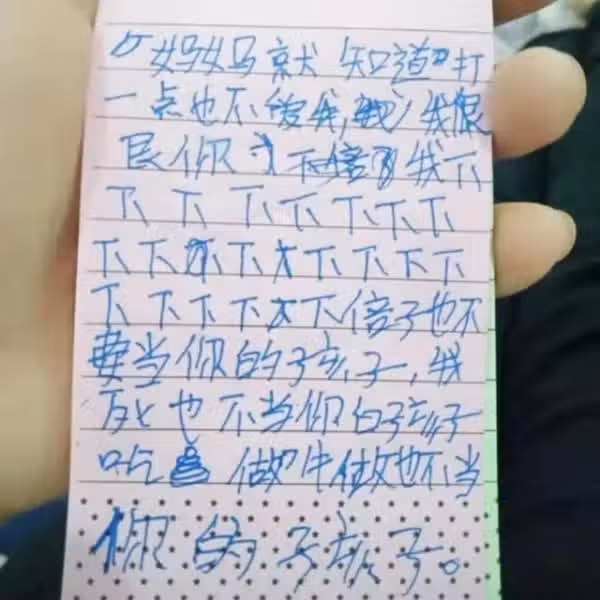 妈妈就知道打
一点也不爱我,我恨
你 不 我下
下下下下下下下
下下下下下下下下
下下下下下下倍子也不
要当你的孩子,我
死也不当你的孩子
吃 做牛做也不当
你的孩子。